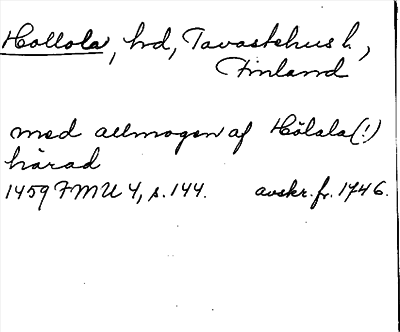 Hollola, hd, Tavastehus l.,
Finland
med allmogen af Hölala (!)
härad
1459 FMU 4, s. 144. avskr. fr. 1746.